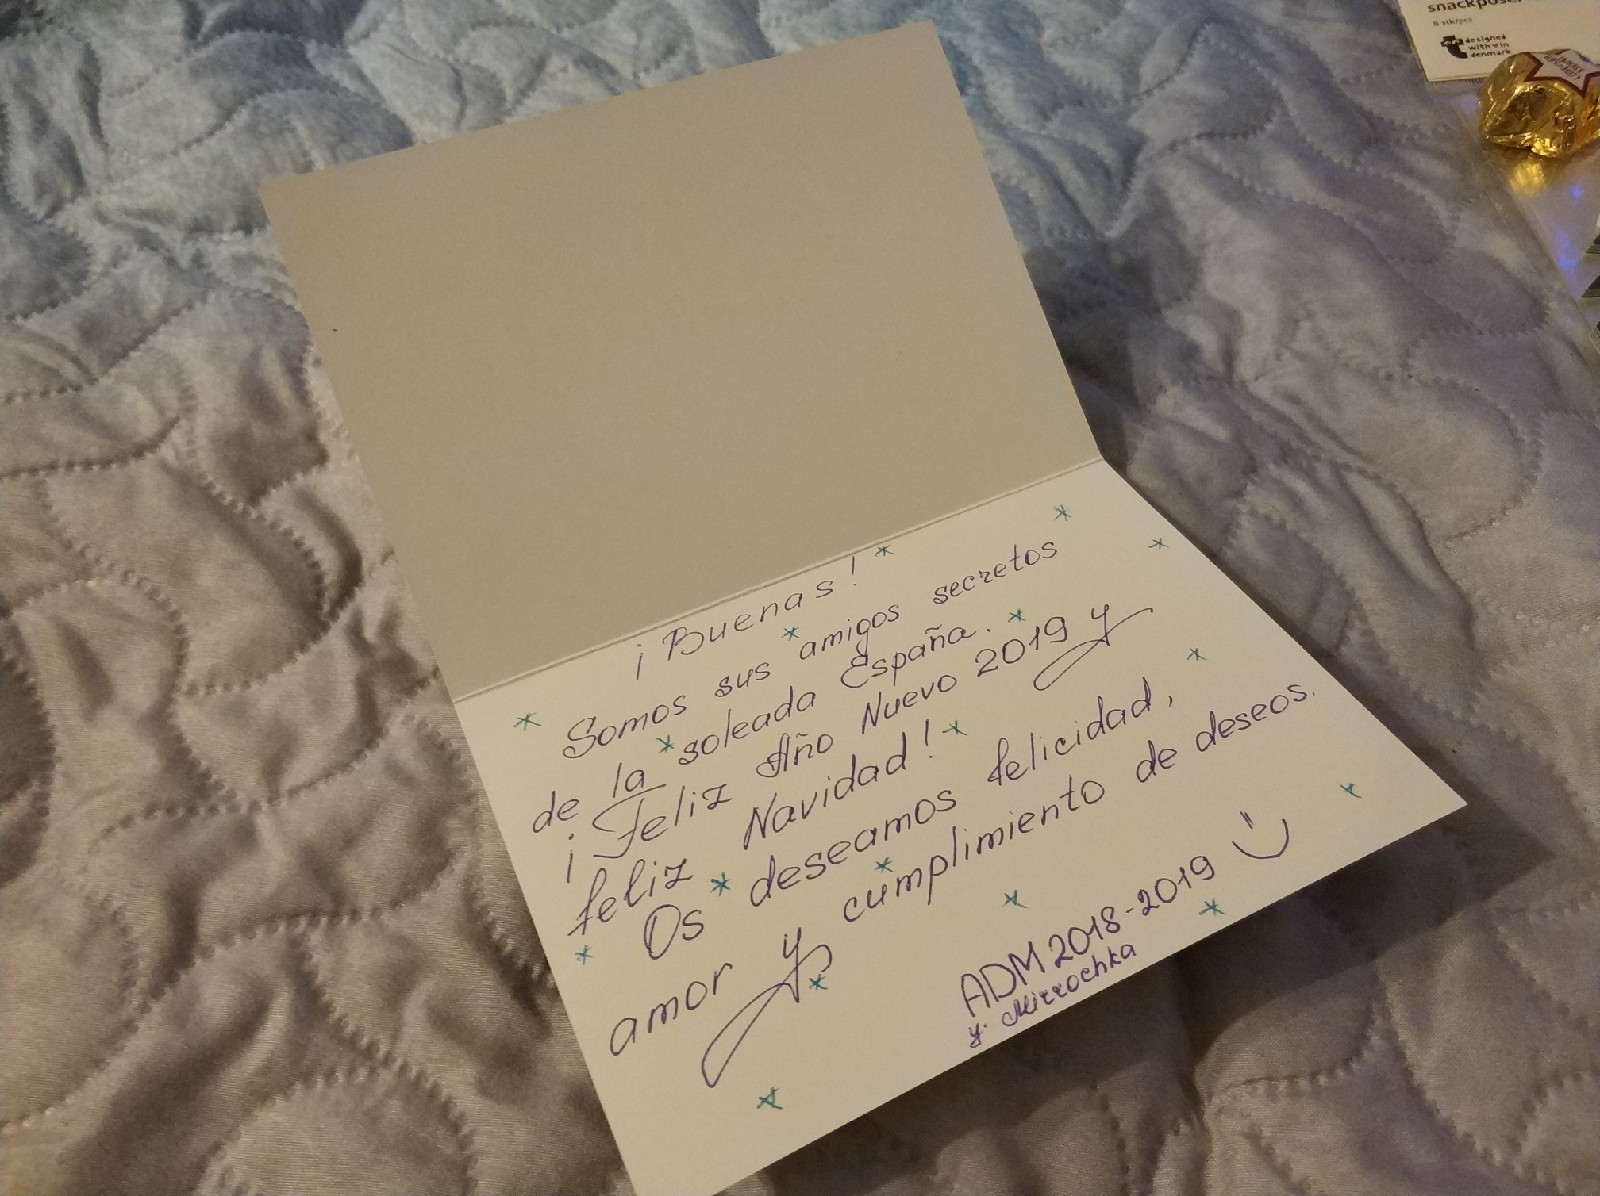 snackposer
8 stk/pcs
designed
with vin
denmark
¡Buenas!
Somos sus amigos secretos
de la soleada España.
¡Feliz Año Nuevo 2019 y
feliz Navidad!
Os deseamos felicidad,
amor y cumplimiento de deseos.
ADM 2018-2019
y. Mirrochka